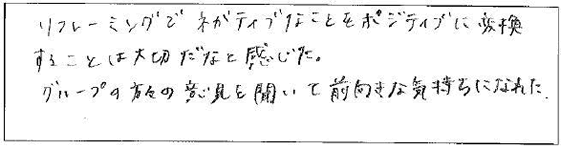 リフレーミングでネガティブなことをポジティブに変換
することは大切だなと感じた。
グループの方々の意見を聞いて前向きな気持ちになれた.